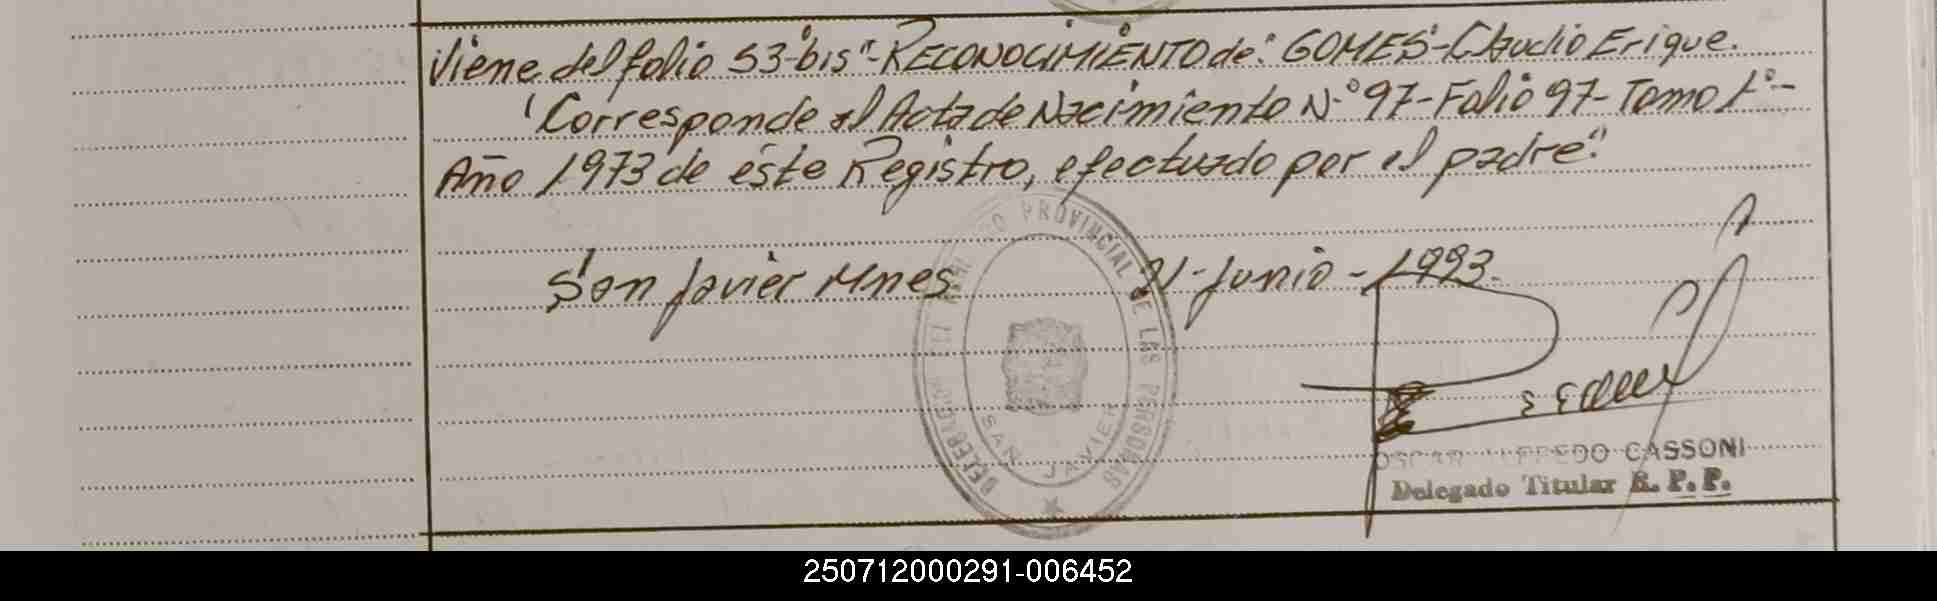 Viene del folio 53-bis"-RECONOCIMIENTO de: GOMES-Claudio Erique.
"Corresponde al Acta de Nacimiento N.º 97-Folio 97-Tomo 1º-
Año 1973 de éste Registro, efectuado por el padre."
San Javier Mnes 21-Junio-1993.
PROVINCIAL DE LAS PERSONAS
SAN JAVIER
OSCAR ALFREDO CASSONI
Delegado Titular R. P. P.
250712000291-006452